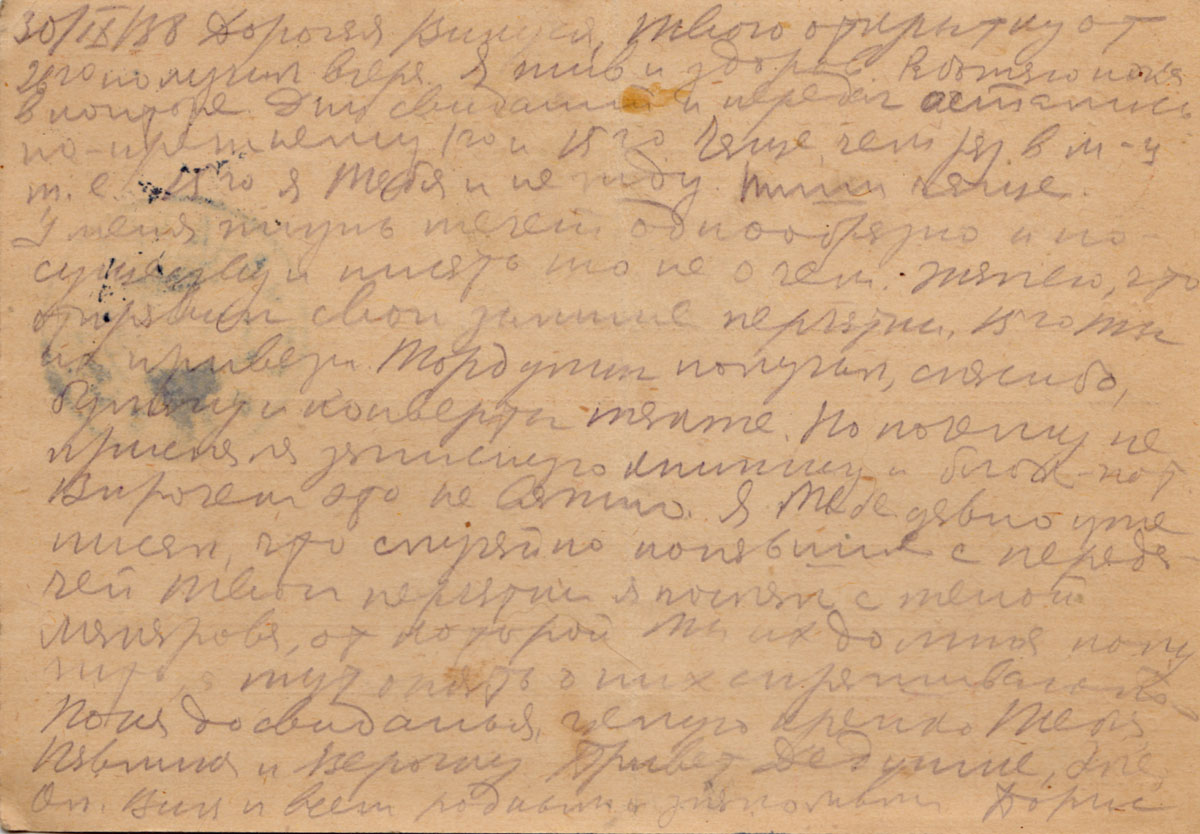 30/IX/38 Дорогая Винуся, твою открытку от
21го получил вчера. Я жив и здоров. Работаю пока
в конторе. Дни свиданий и передач остались
по-прежнему 1го и 15го. Чаще, чем раз в м-ц
т. е. 15го я тебя и не жду. Пиши чаще.
У меня жизнь течет однообразно и по-
существу и писать то не о чем. Жалею, что
отправил свои зимние перчатки, 15го ты
их привези. Мордушин получил, спасибо,
бумагу и конверты также. Но почему не
прислала записную книжку и блок-нот
Впрочем это не важно. Я тебе давно уже
писал, что случайно попавшие с переда-
чей твои перчатки я послал с женой
от которой ты их должна полу
чить, а тут опять о них спрашиваешь
Пока досвиданья, целую крепко тебя
Павлика и Верочку Привет Дедушке,
Ол. Вил и всем родным и знакомым Борис